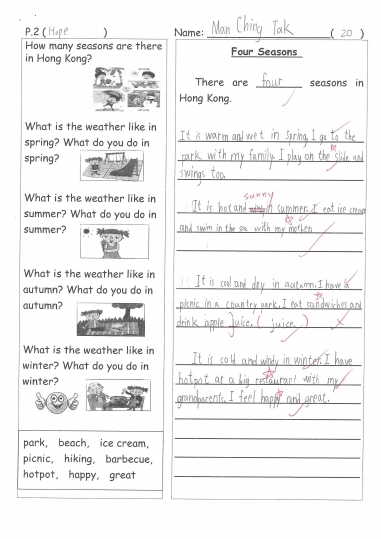 P.2 ( Hope )
Name: Man Ching Tak ( 20 )
How many seasons are there
in Hong Kong?
What is the weather like in
spring? What do you do in
spring?
What is the weather like in
summer? What do you do in
summer?
What is the weather like in
autumn? What do you do in
autumn?
What is the weather like in
winter? What do you do in
winter?
park, beach, ice cream,
picnic, hiking, barbecue,
hotpot, happy, great
Four Seasons
There are four seasons in
Hong Kong.
It is warm and wet in spring. I go to the
park with my family. I play on the slide and
swings too.
sunny
It is hot and in summer. I eat ice cream
and swim in the sea with my mother.
It is cool and dry in autumn. I have a
picnic in a country park. I eat sandwiches and
drink apple juice. ( juice )
It is cold and windy in winter. I have
hotpot at a big restaurant with my
grandparents. I feel happy and great.